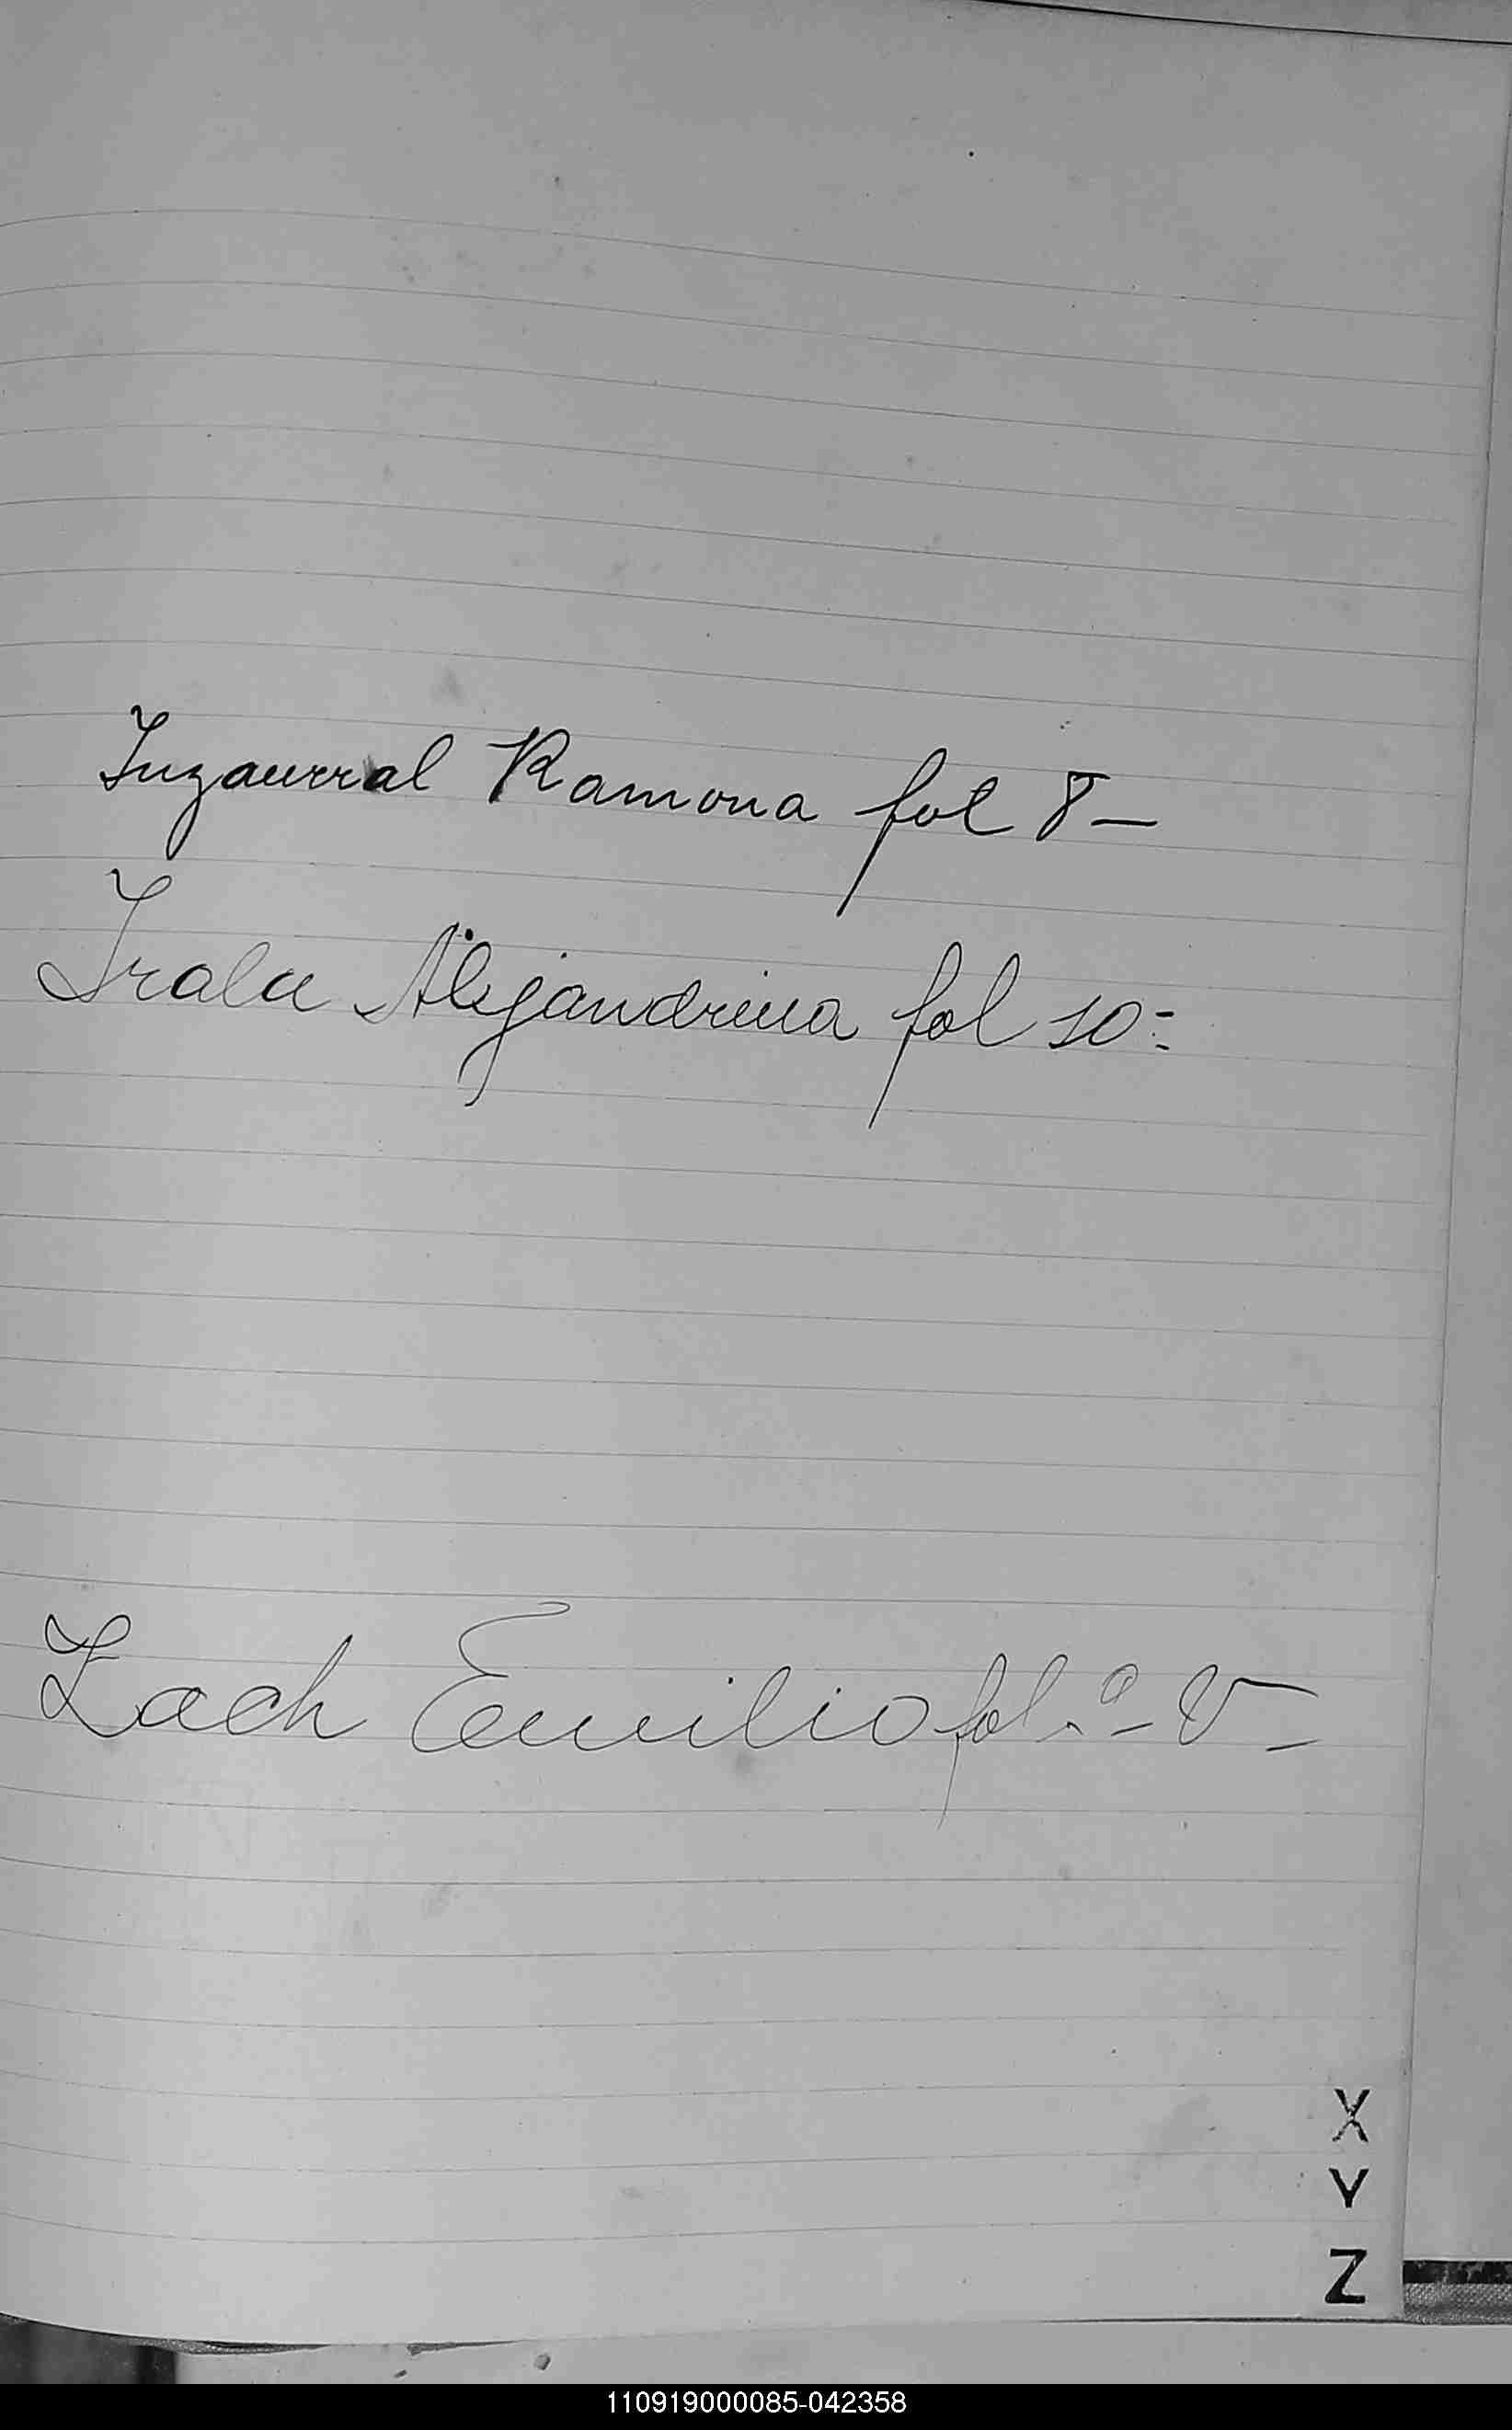 Inzaurral Ramona fol 8-
Irala Alejandrina fol 10=
Zach Emilio fol.º 8-
X
Y
Z
110919000085-042358